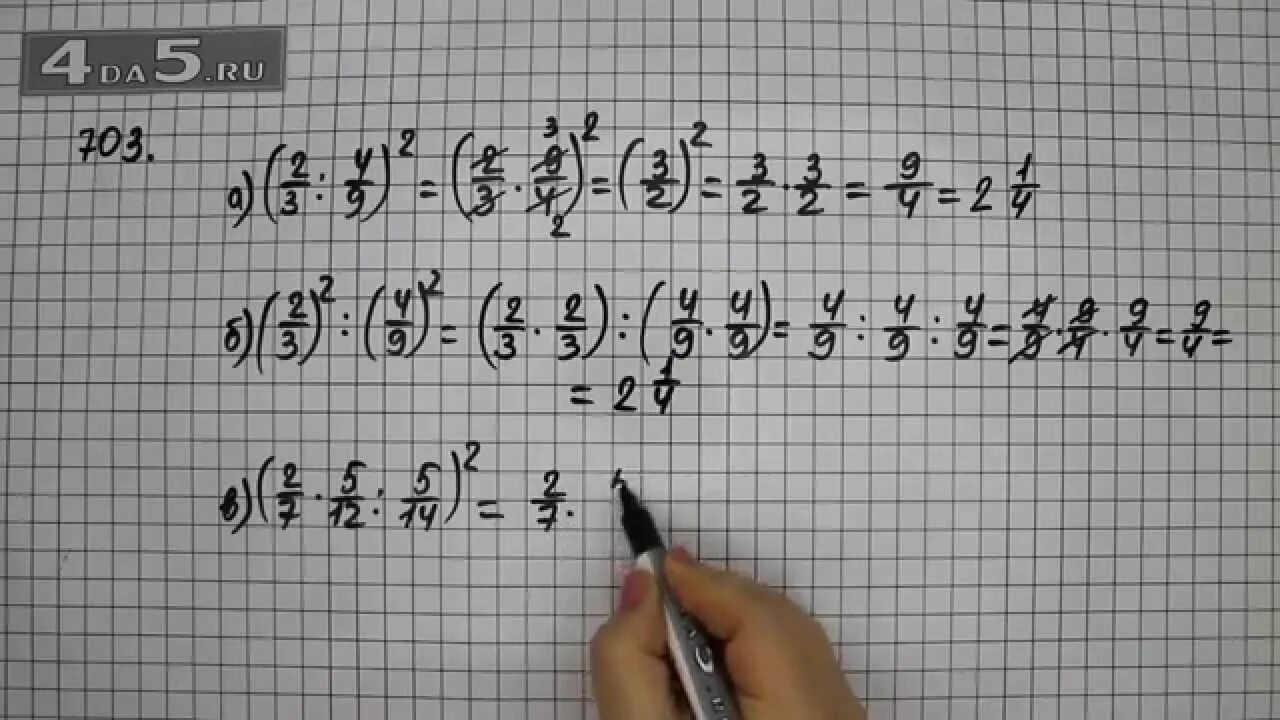 4DA5.RU
703.
а) (2/3 : 4/9)² = (2/3 · 9/4)² = (3/2)² = 3/2 · 3/2 = 9/4 = 2 1/4
б) (2/3)² : (4/9)² = (2/3 · 2/3) : (4/9 · 4/9) = 4/9 : 4/9 : 4/9 = 4/9 · 9/4 · 9/4 = 9/4 =
= 2 1/4
в) (2/7 · 5/12 : 5/14)² = 2/7 ·